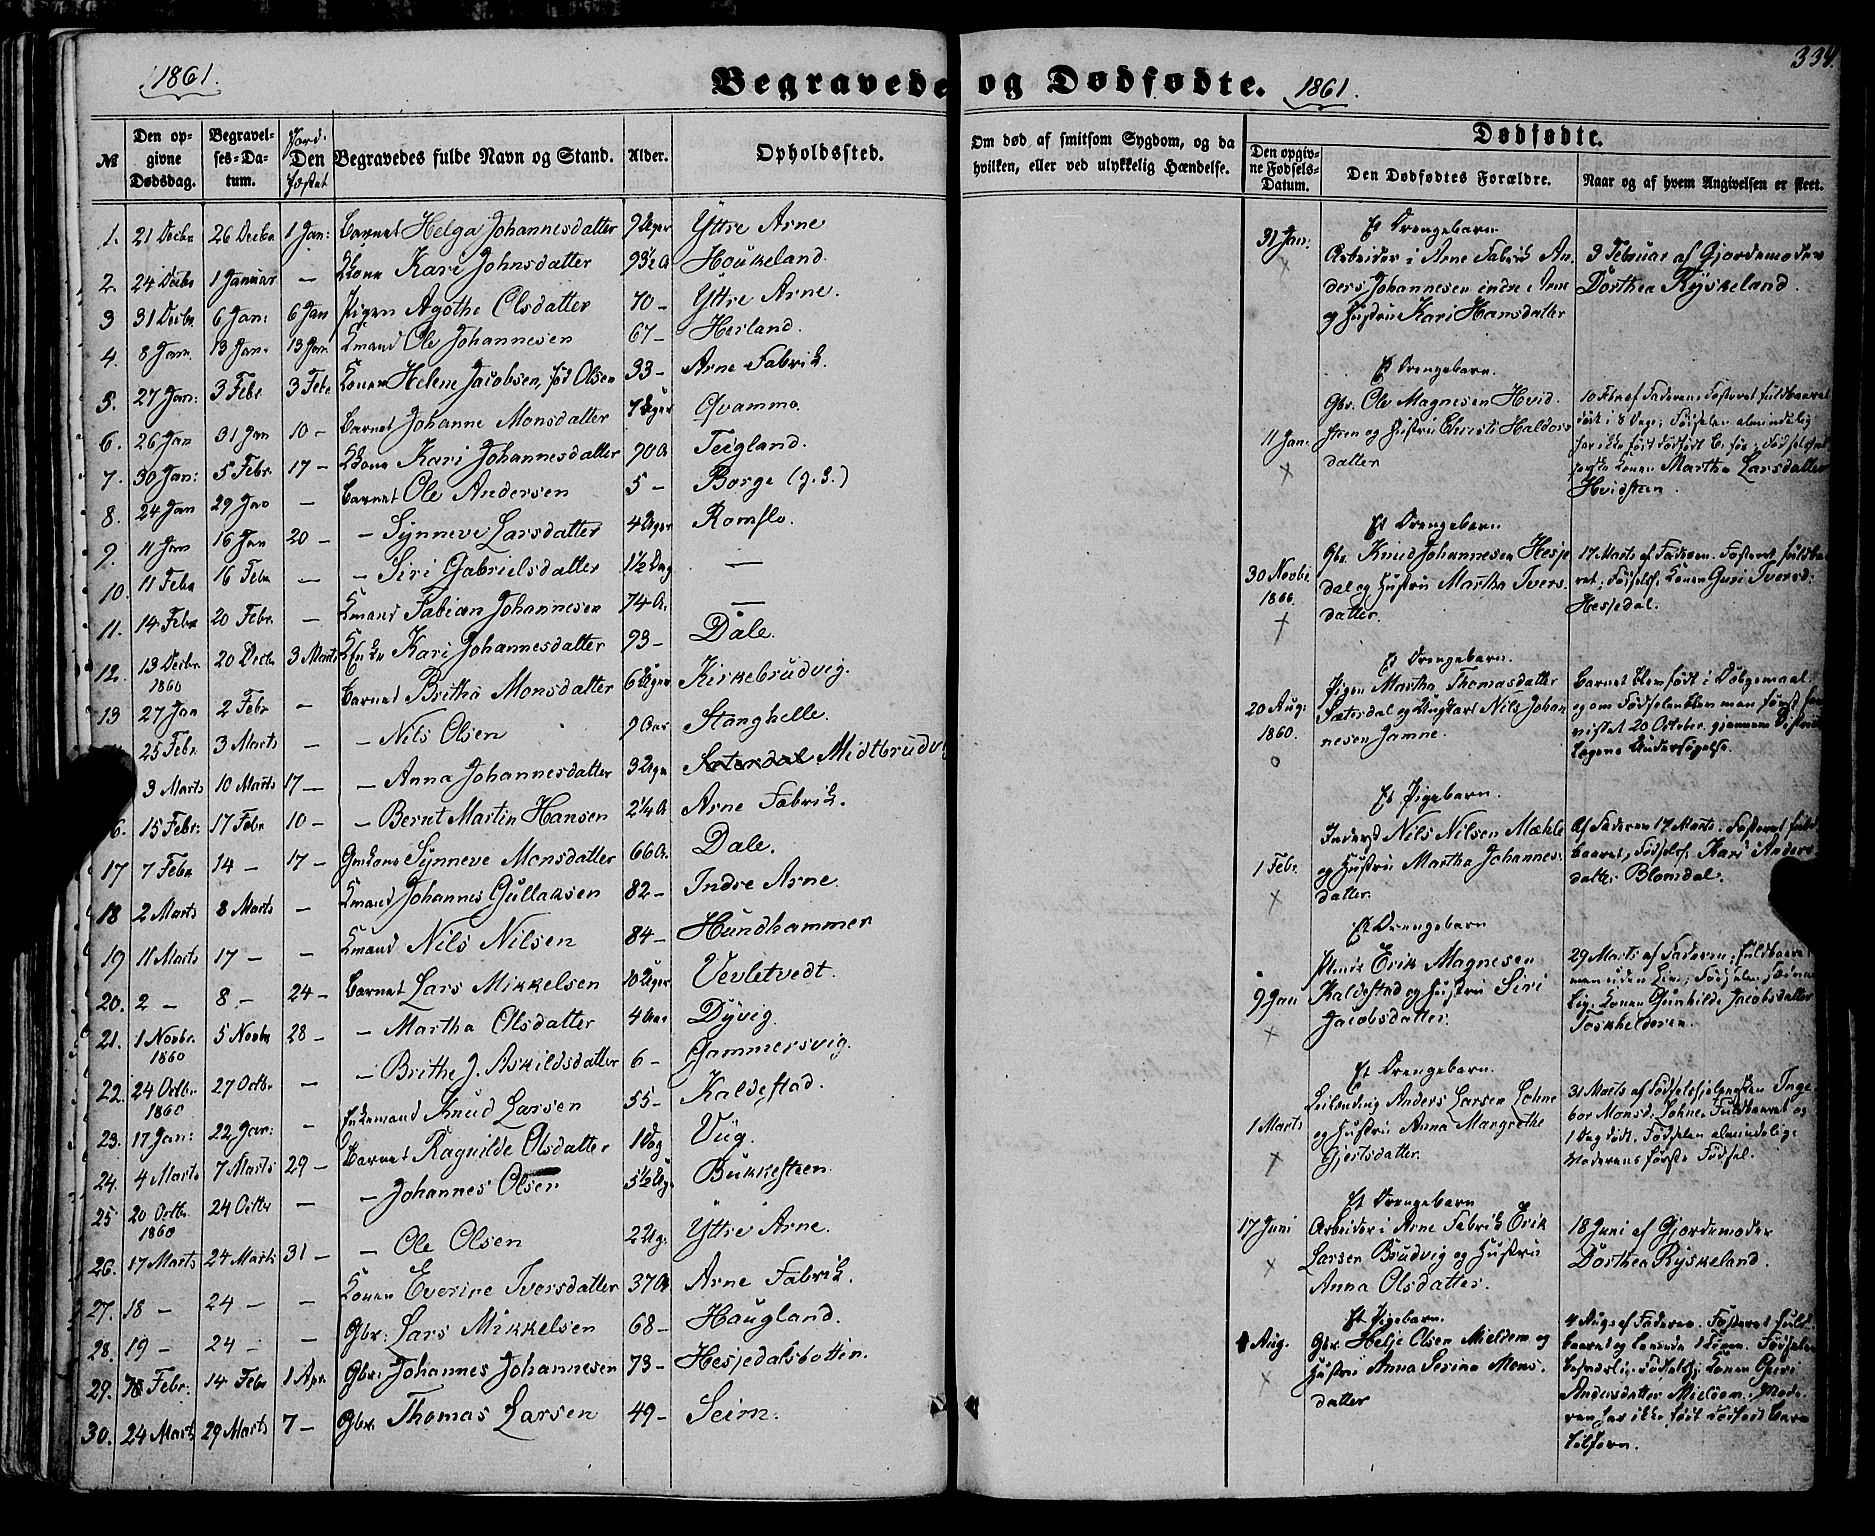 1861.
Begravede og Dødfødte.
1861.
334.
№
Den op-
givne
Dødsdag.
Begravel-
ses-Da-
tum.
Jord-
Den
fæstet
Begravedes fulde Navn og Stand.
Alder.
Opholdssted.
Om død af smitsom Sygdom, og da
hvilken, eller ved ulykkelig Hændelse.
Dødfødte.
Den opgiv-
ne Fødsels-
Datum.
Den Dødfødtes Forældre.
Naar og af hvem Angivelsen er skeet.
1. 21 Decbr 26 Decbr 1 Jan: Barnet Helga Johannesdatter 9 Uger Yttre Arne
2. 24 Decbr 1 Januar — Kari Johnsdatter 93½ A Houkeland.
3 31 Decbr. 6 Jan: 6 Jan Pigen Agothe Olsdatter 70 - Yttre Arne.
4. 8 Jan. 13 Jan. 13 Jan. Kmand Ole Johannesen 67 - Herland.
5. 27 Jan: 3 Febr 3 Febr. Konen Helene Jacobsen, fød Olsen 33 - Arne Fabrik.
6. 26 Jan 31 Jan 10 - Barnet Johanne Monsdatter 7 Uger Qvamme.
7. 30 Jan: 5 Febr. 17 - Kari Johannesdatter 90 A Teigland.
8. 24 Jan 29 Jan — Barnet Ole Andersen 5 - Borge (g. S.)
9. 11 Jan 16 Jan 20 - - Synneve Larsdatter 4 Uger Romslo.
10. 11 Febr 16 Febr — - Siri Gabrielsdatter 1½ Dag —
11. 14 Febr 20 Febr. — Kmand Fabian Johannesen 74 A. —
12. 13 Decbr. 1860 20 Decbr 3 Marts Kari Johannesdatter 93 - Dale.
13 27 Jan 2 Febr — Barnet Britha Monsdatter 6 Uger Kirkebrudvig.
25 Febr 3 Marts — - Nils Olsen 9 Aar Stanghelle.
3 Marts 10 Marts 17 - - Anna Johannesdatter 3 Uger Sæterdal Midtbrudvig
6. 15 Febr: 17 Febr 10 - - Bernt Martin Hansen 2¼ A Arne Fabrik.
17 7 Febr 14 - 17 - Synneve Monsdatter 66 A. Dale.
18 2 Marts 8 Marts — Kmand Johannes Gullaksen 82 - Indre Arne.
19 11 Marts 17 - — Kmand Nils Nilsen 84 - Hundhammer
20. 2 - 8 - 24 - Barnet Lars Mikkelsen 10 Uger Vevletvedt.
21. 1 Novbr. 1860 5 Novbr 28 - - Martha Olsdatter 4 Aar Dyvig.
22. 24 Octbr. 1860 27 Octbr. — - Brithe J. Askildsdatter 6 - Gammersvig.
23. 17 Jan: 22 Jan: — Enkemand Knud Larsen 55 - Kaldestad.
24. 4 Marts 7 Marts 29 - Barnet Ragnilde Olsdatter 1 Dag Viig.
25 20 Octbr. 1860 24 Octbr — - Johannes Olsen 5½ Dg. Bukkesteen.
26. 17 Marts 24 Marts 31 - - Ole Olsen 2 Ug. Yttre Arne.
27. 18 - 24 - — Konen Everine Iversdatter 37 A Arne Fabrik.
28. 19 - 24 - — Gbr: Lars Mikkelsen 68 - Haugland.
29. Febr. 14 Febr 1 Apr. Gbr: Johannes Johannesen 73 - Hesjedalsbotten.
30. 24 Marts 29 Marts 7 - Gbr. Thomas Larsen 49 - Seim.
Et Drengebarn
31 Jan: Arbeider i Arne Fabrik An-
ders Johannesen indre Arne
og Hustru Kari Hansdatter
3 Februar af Gjordemoder
Dorthea Ryskeland.
Et Drengebarn.
11 Jan: Gbr. Ole Magnesen Hvid-
steen og Hustru Christi Haldors-
datter
10 Febr af Faderen. Fosteret fuldbaaret
dødt i 8 Dage; Fødselen almindelig
har ikke født dødfødt B. før; Fødselshjel-
perske Konen Martha Larsdatter
Hvidsteen.
Et Drengebarn
30 Novbr. 1860. Gbr. Knud Johannesen Hesje-
dal og Hustru Martha Ivers-
datter.
17 Marts af Faderen. Fosteret fuldbaa-
ret, Fødselshj. Konen Guri Iversd:
Hesjedal.
Et Drengebarn.
20 Aug: 1860. Pigen Martha Thomasdatter
Sætersdal og Ungkarl Nils Johan-
nesen Jamne.
Barnet blev født i Dølgsmaal
og om Fødselen blev man først
vis 20 October gjennem Districts-
Lægens Undersøgelse.
Et Pigebarn.
1 Febr. Inderst Nils Nilsen Mæhle
og Hustru Martha Johannes-
datter.
Af Faderen 17 Marts. Fosteret fuld-
baaret, Fødselshj. Kari Anders-
datter Blomdal.
Et Drengebarn
9 Jan Erik Magnesen
Kaldestad og Hustru Siri
Jacobsdatter.
29 Marts af Faderen; fuldbaaret
men uden Liv; Fødselen
Konen Gunhilde Jacobsdatter
Toskhelderen.
Et Drengebarn.
1 Marts Leilending Anders Larsen Lohne
og Hustru Anna Margrethe
Gjertsdatter.
31 Marts af Fødselshjelpersken Inge-
bor Monsd. Lohne. Fuldbaaret og
1 Dag dødt. Fødselen almindelig.
Moderens første Fødsel.
Et Drengebarn
17 Juni Arbeider i Arne Fabrik Erik
Larsen Brudvig og Hustru
Anna Olsdatter.
18 Juni af Gjordemoder
Dorthea Ryskeland.
Et Pigebarn.
4 Aug. Gbr. Helje Olsen Mieldem og
Hustru Anna Serina Mons-
datter
4 Aug af Faderen. Fosteret fuld-
baaret og Fødselen
besværlig. Fødselshj. Konen Guri
Andersdatter Mieldem. Mode-
ren har ikke født dødfødt Barn
tilforn.